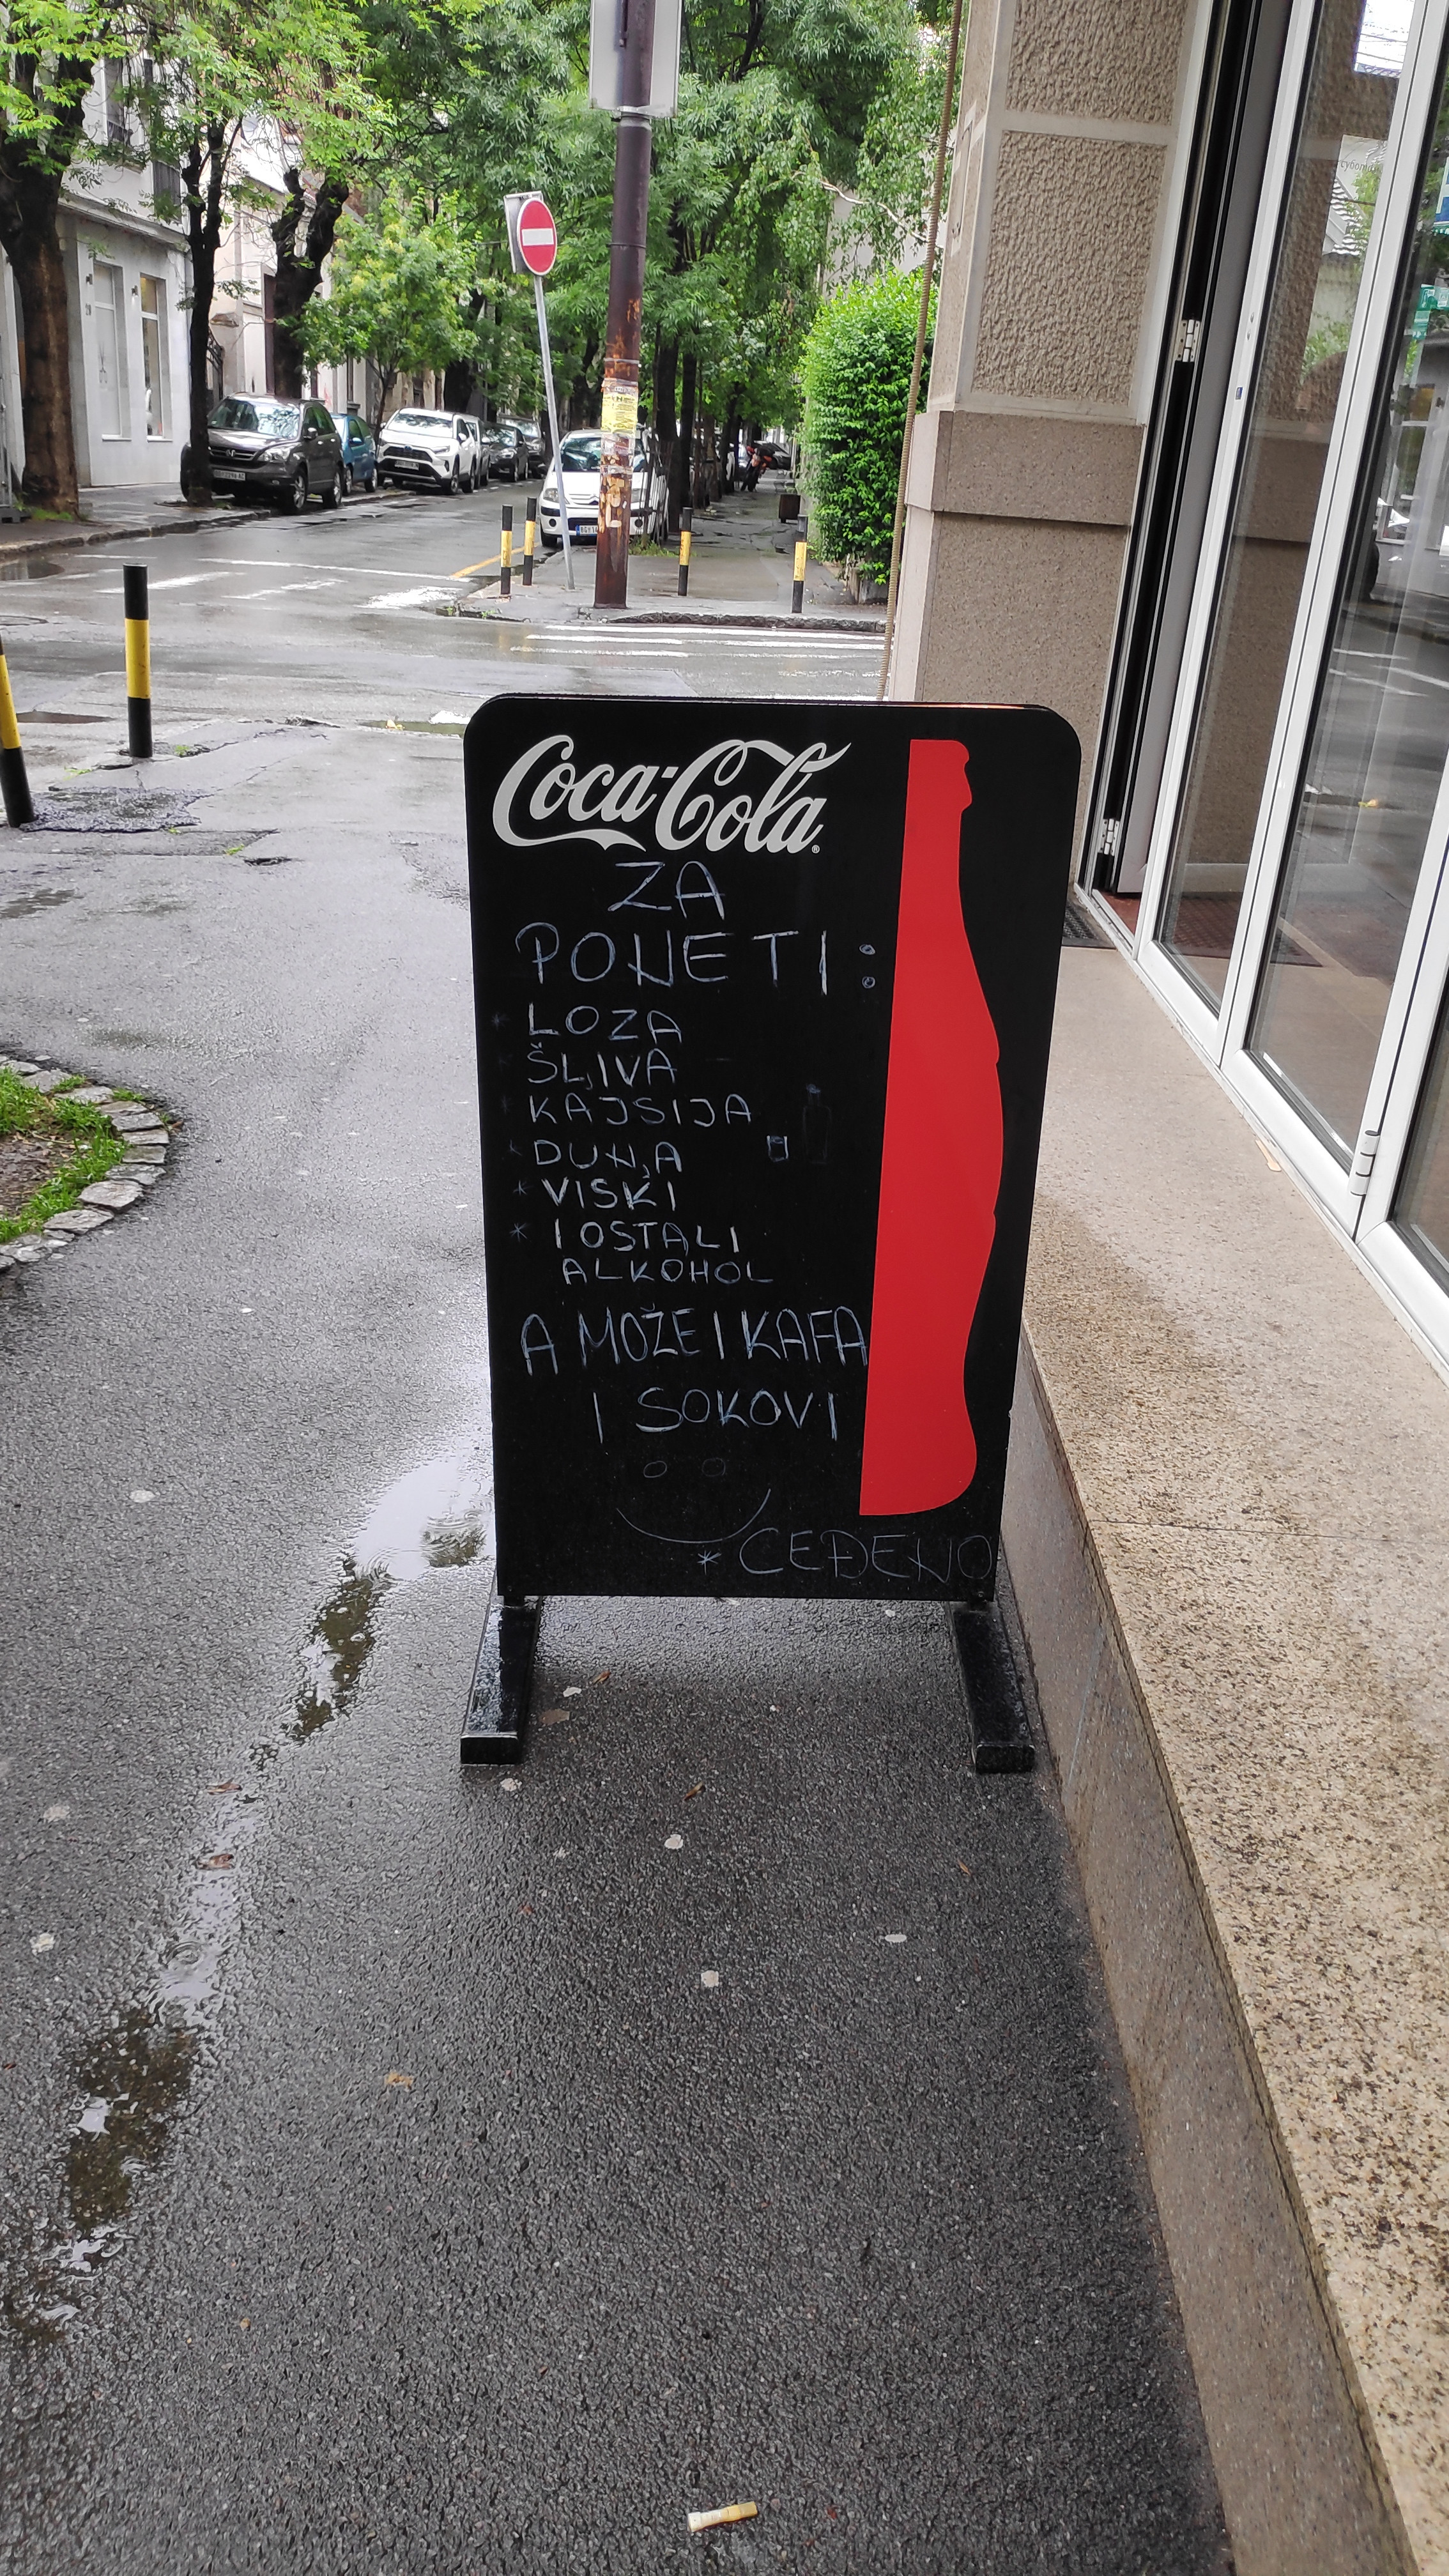 Coca-Cola
ZA
PONETI:
* LOZA
* ŠLJIVA
* KAJSIJA
* DUNJA
* VISKI
* I OSTALI
ALKOHOL
A MOŽE I KAFA
I SOKOVI
* CEĐENO